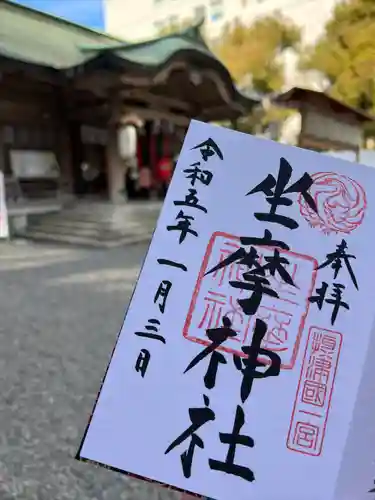 奉拝
摂津國一宮
坐摩神社
令和五年一月三日